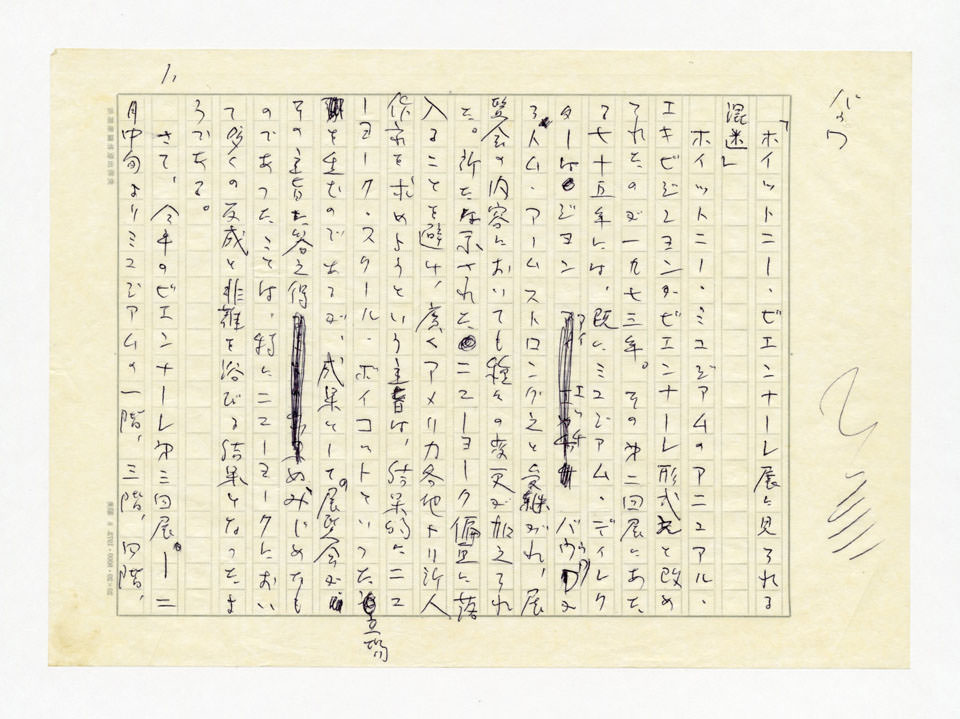 バウ
1,
「ホイットニー・ビエンナーレ展に見られる
混迷」
ホイットニー・ミュジアムのアニュアル・
エキビジションがビエンナーレ形式と改め
られたのが一九七三年。その第二回展にあた
る七十五年には、既にミュジアム・ディレク
ターはジョン バウワ
トム・アームストロングえと受継がれ、展
覧会の内容においても種々の変更が加えられ
た。所た示された ニューヨーク偏重に落
入ることを避け、広くアメリカ各地より新人
作家を求めようという主旨は、結果的にニュ
ーヨーク・スクール・ボイコットといった
を生むのであるが、成果として展覧会が
その主旨に答え得 めみじめなも
のであったことは、特にニューヨークにおい
て多くの反感と非難を浴びる結果となったよ
うである。
さて、今年のビエンナーレ第三回展ー二
月中旬よりミュジアムの一階、三階、四階、